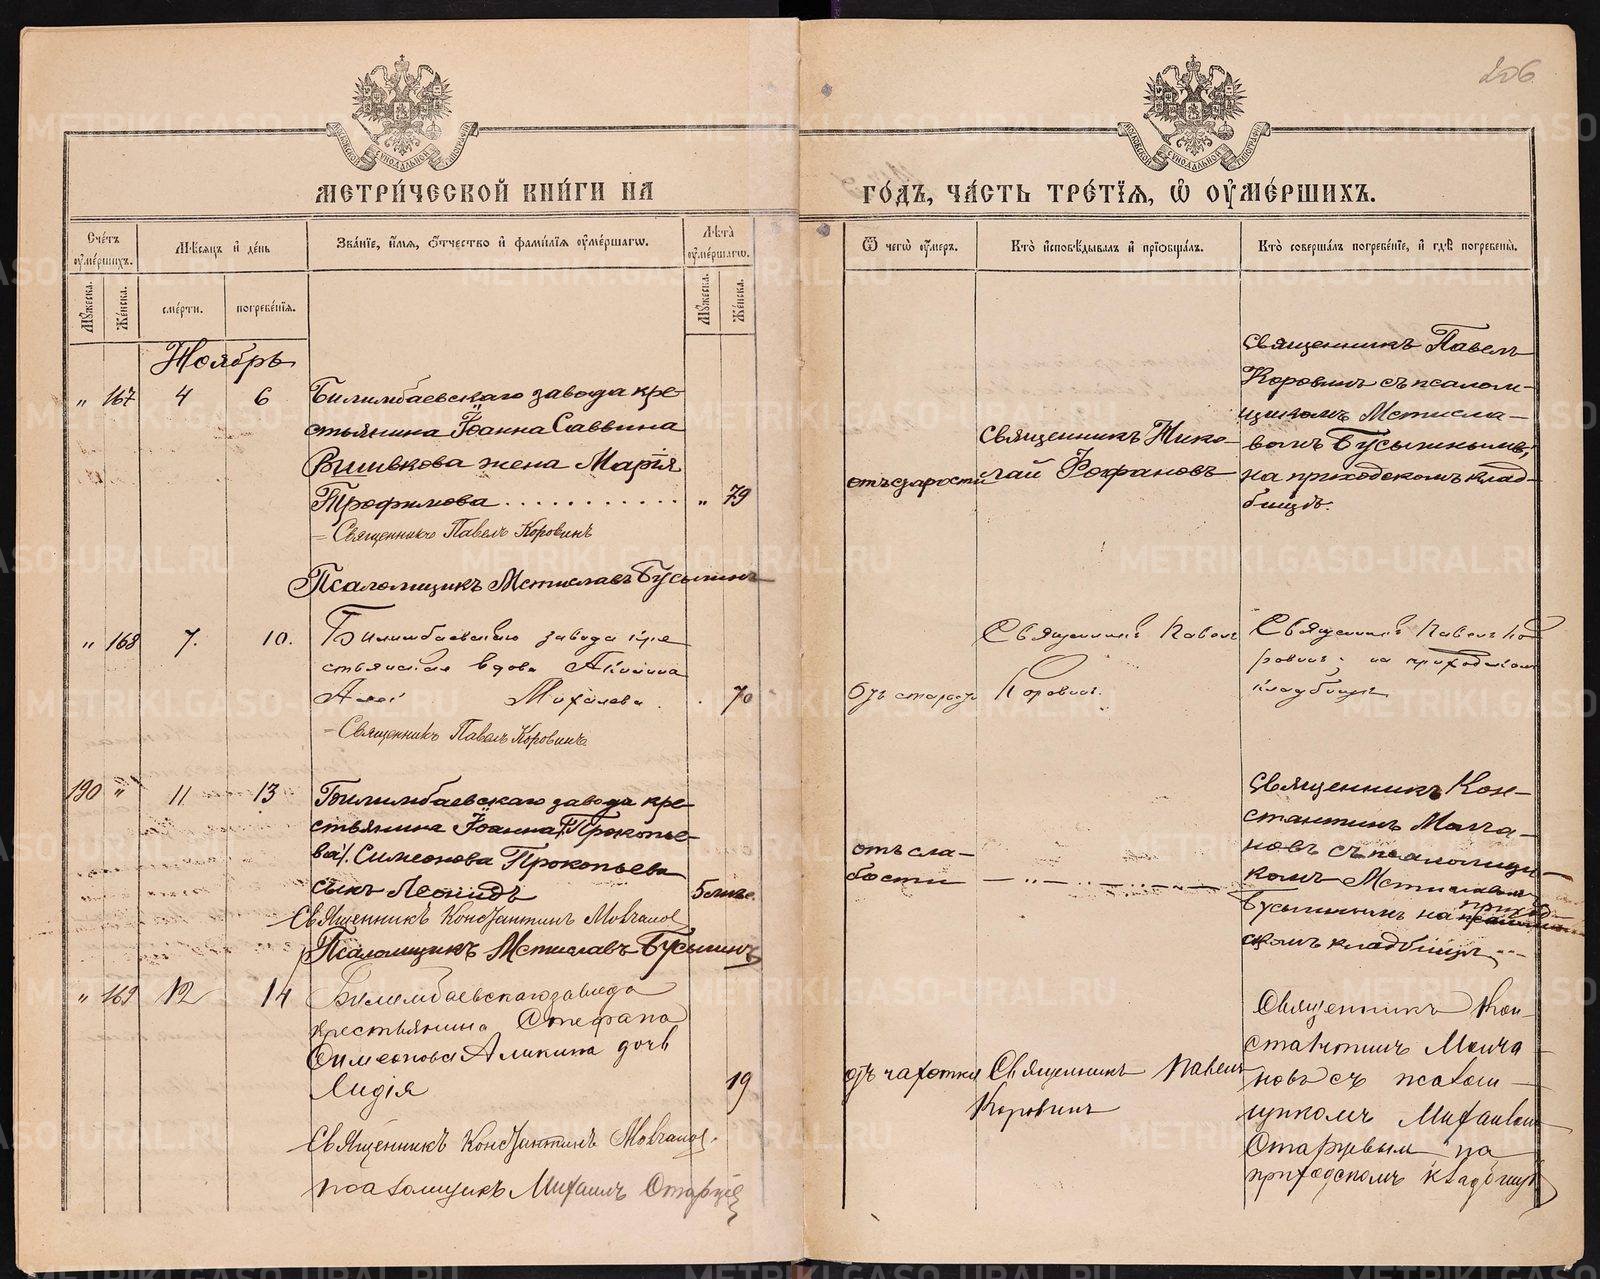 206
МОСКОВСКОЙ СѴНОДАЛЬНОЙ ТИПОГРАФІИ
МОСКОВСКОЙ СѴНОДАЛЬНОЙ ТИПОГРАФІИ
МЕТРИ́ЧЕСКОЙ КНИ́ГИ НА
ГО́ДЪ, ЧА́СТЬ ТРЕ́ТЇѦ, Ѽ ОУ҆МЕ́РШИХЪ.
Сче́тъ оу҆ме́ршихъ.
Мѣ́сѧцъ и҆ де́нь
Зва́нїе, и҆́мѧ, ѻ҆́тчество и҆ фами́лїѧ оу҆ме́ршагѡ.
Лѣ́та оу҆ме́ршагѡ.
Ѿ чегѡ̀ оу҆́меръ.
Кто̀ и҆сповѣ́дывалъ и҆ прїѡбща́лъ.
Кто̀ соверша́лъ погребе́нїе, и҆ гдѣ̀ погребены̀.
Мꙋ́жеска.
Же́нска.
сме́рти.
погребе́нїѧ.
Мꙋ́жеска.
Же́нска.
Ноябрь
" 167 4 6
Билимбаевскаго завода кре-
стьянина Іоанна Саввина
Вшивкова жена Марія
Трофимова . . . . . . . . . . . " 79
= Священникъ Павелъ Коровинъ
Псаломщикъ Мстиславъ Бусыгинъ
отъ старости
Священникъ Нико-
лай Фофановъ
Священникъ Павелъ
Коровинъ съ псалом-
щикомъ Мстисла-
вомъ Бусыгинымъ,
на приходскомъ клад-
бищѣ.
" 168 7. 10.
Билимбаевскаго завода кре
стьянская вдова
Михалева . . 70
- Священникъ Павелъ Коровинъ
отъ старости
Священникъ Павелъ
Коровинъ.
Священникъ Павелъ Ко
ровинъ; на приходскомъ
кладбищѣ
190 " 11 13
Билимбаевскаго завода кре-
стьянина Іоанна /Прокопье-
ва/. Симеонова Прокопьева
сынъ Леонидъ 5
Священникъ Константинъ Мовчанов
Псаломщикъ Мстиславъ Бусыгинъ
отъ сла-
бости
— " — " — " —
Священникъ Кон-
стантинъ Молча-
новъ съ псаломщи-
комъ Мстиславомъ
Бусыгинымъ на приход-
скомъ кладбищѣ
" 169 12 14
Билимбаевскаго завода
крестьянина Стефана
Симеонова Аликина дочь
Лидія 19
Священникъ Константинъ Мовчанов.
псаломщикъ Михаилъ
отъ чахотки
Священникъ Павелъ
Коровинъ
Священникъ Кон-
стантинъ Молча-
новъ съ псалом-
щикомъ Михаиломъ
на
приходскомъ кладбищѣ
METRIKI.GASO-URAL.RU